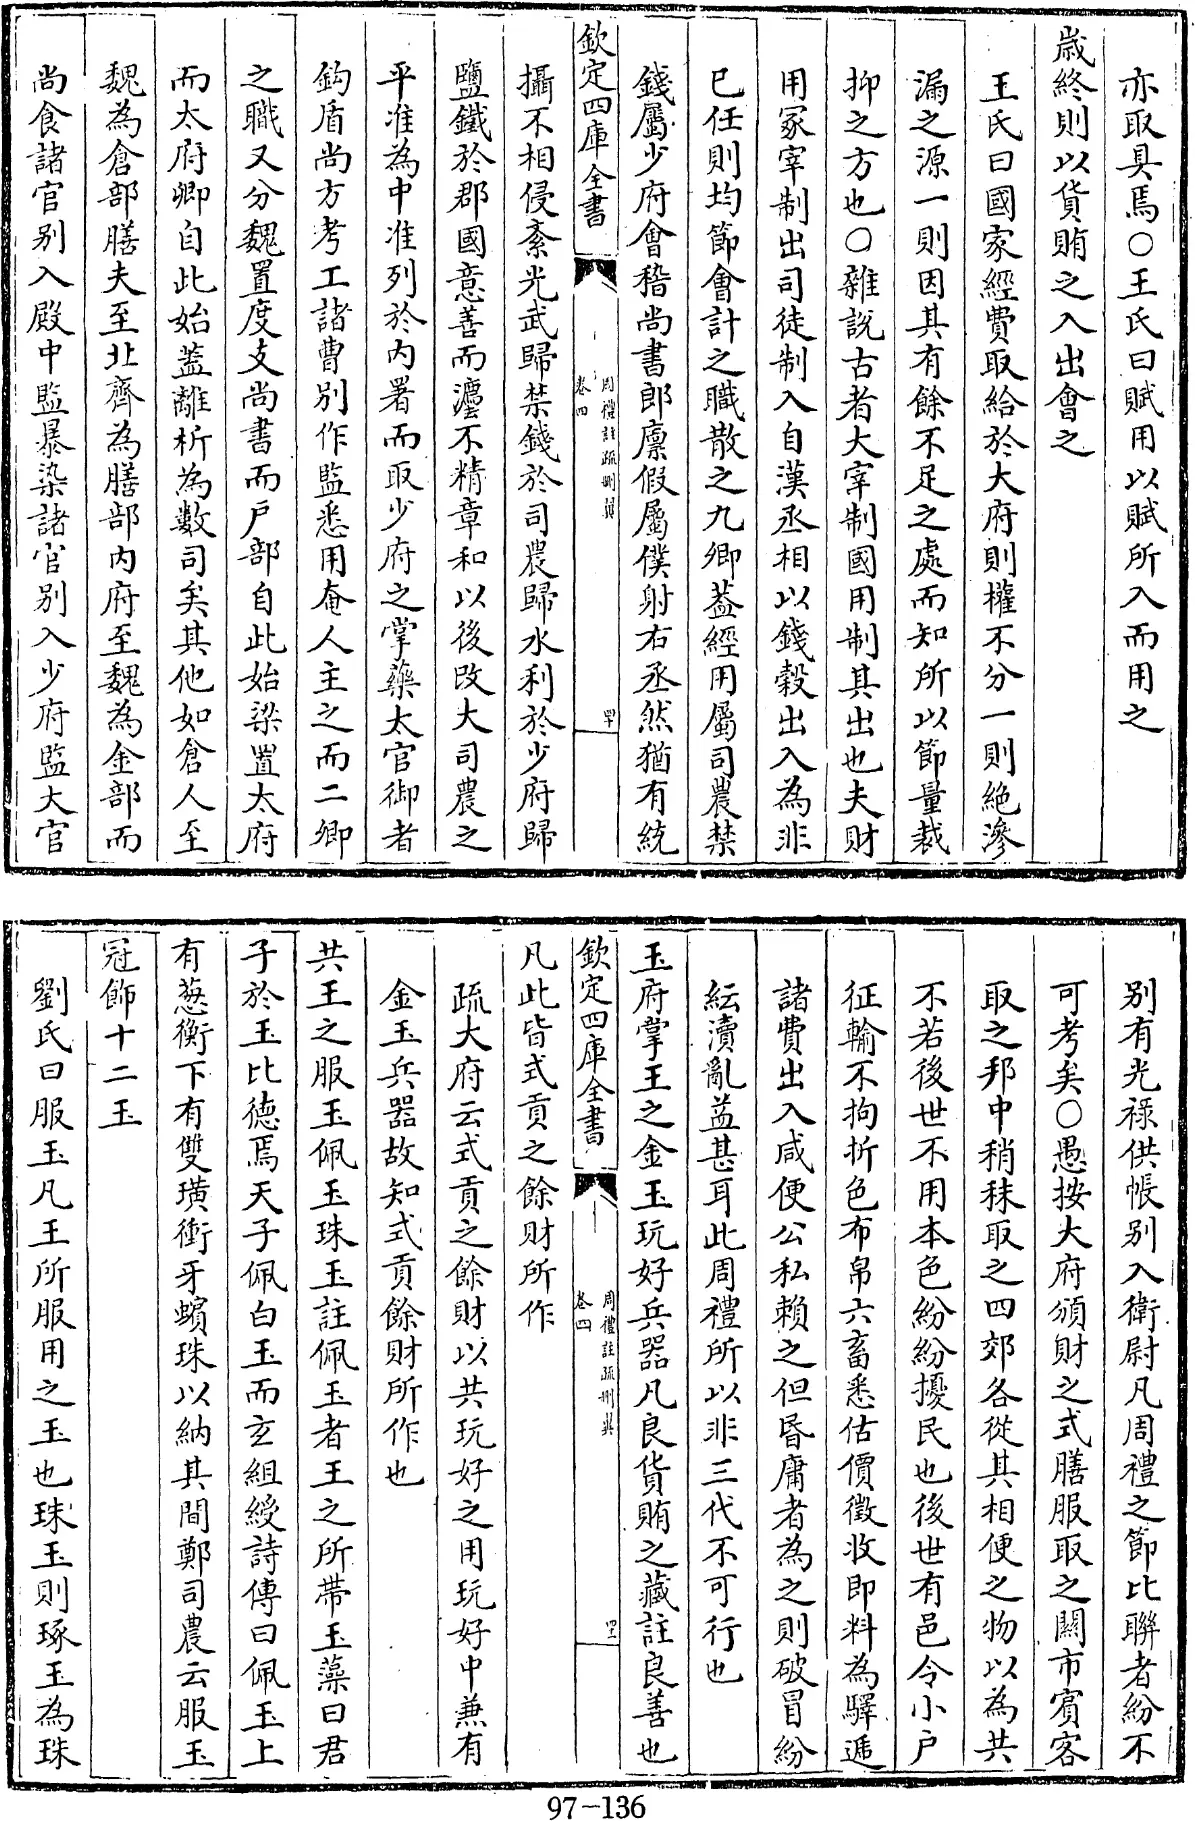 亦取具焉○王氏曰賦用以賦所入而用之
歲終則以貨賄之入出會之
王氏曰國家經費取給於大府則權不分一則絶滲
漏之源一則因其有餘不足之處而知所以節量裁
抑之方也○雜說古者大宰制國用制其出也夫財
用冢宰制出司徒制入自漢丞相以錢穀出入為非
已任則均節會計之職散之九卿葢經用屬司農禁
錢屬少府會稽尚書郎廪假屬僕射右丞然猶有統
欽定四庫全書
周禮註疏刪翼
卷四
四十
攝不相侵紊光武歸禁錢於司農歸水利於少府歸
鹽鐵於郡國意善而灋不精章和以後改大司農之
平准為中准列於內署而取少府之掌藥太官御者
鈎盾尚方考工諸曹别作監悉用奄人主之而二卿
之職又分魏置度支尚書而戶部自此始梁置太府
而太府卿自此始蓋離析為數司矣其他如倉人至
魏為倉部膳夫至北齊為膳部內府至魏為金部而
尚食諸官别入殿中監暴染諸官别入少府監大官
别有光祿供帳别入衛尉凡周禮之節比聯者紛不
可考矣○愚按大府頒財之式膳服取之關市賓客
取之邦中稍秣取之四郊各從其相便之物以為共
不若後世不用本色紛紛擾民也後世有邑令小戶
征輸不拘折色布帛六畜悉估價徵收即料為驛遞
諸費出入咸便公私賴之但昏庸者為之則破冒紛
紜瀆亂益甚耳此周禮所以非三代不可行也
玉府掌王之金玉玩好兵器凡良貨賄之藏註良善也
欽定四庫全書
周禮註疏刪翼
卷四
四十一
凡此皆式貢之餘財所作
疏大府云式貢之餘財以共玩好之用玩好中兼有
金玉兵器故知式貢餘財所作也
共王之服玉佩玉珠玉註佩玉者王之所帶玉藻曰君
子於玉比德焉天子佩白玉而玄組綬詩傳曰佩玉上
有葱衡下有雙璜衝牙蠙珠以納其間鄭司農云服玉
冠飾十二玉
劉氏曰服玉凡王所服用之玉也珠玉則琢玉為珠
97-136